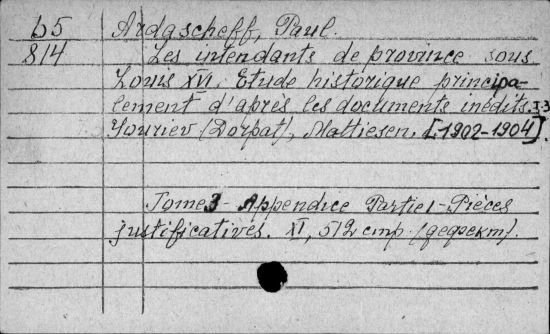 b5 Ardascheff, Paul.
814 Les intendants de province sous
Louis XVI. Etude historique principa-
lement d'après les documents inédits. 1-3
Youriev (Dorpat), Mattiesen. [1902-1904].
Tome 3 - Appendice Partie 1 - Pièces
justificatives. XI, 512 стр. (дефект).